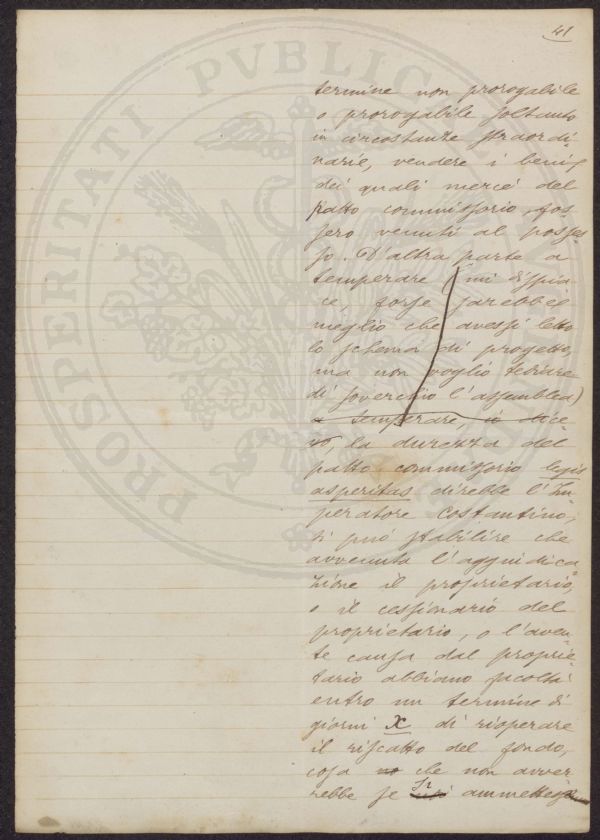 41
termine non prorogabile
o prorogabile soltanto
in circostanze straordi-
narie, vendere i beni,
dei quali mercé del
patto commissorio, fos
sero venuti al posses
so. D'altra parte a
temperare (mi dispia
ce forse sarebbe
meglio che avessi letto
lo schema di progetto,
ma non voglio tediare
di soverchio l'assemblea)
a temperare, io dice
vo, la durezza del
patto commissorio legis
asperitas direbbe l'Im
peratore Costantino,
si può stabilire che
avvenuta l'aggiudica
zione il proprietario,
o il cessionario del
proprietario, o l'aven-
te causa dal proprie-
tario abbiano facoltà
entro un termine di
giorni X di rioperare
il riscatto del fondo,
cosa che non avver
rebbe se si ammettesse
PROSPERITATI PVBLICAE